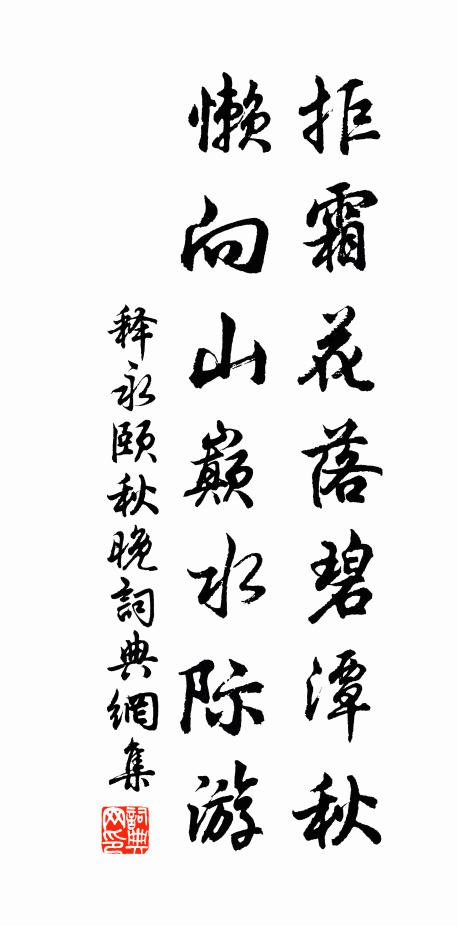 拒霜花落碧潭秋
懒向山巅水际游
释永颐秋晚詞典網集
詞典网印